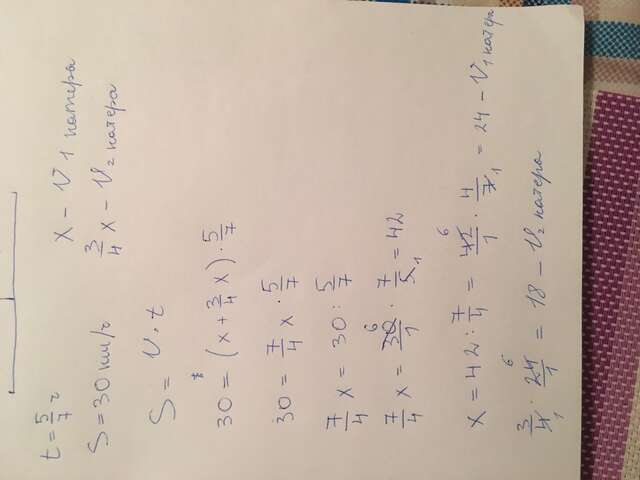 t = 5/7 ч
x – V1 катера
S = 30 км/ч
3/4 x – V2 катера
S = V · t
30 = (x + 3/4 x) · 5/7
30 = 7/4 x · 5/7
7/4 x = 30 : 5/7
7/4 x = 30/1 6 · 7/5 1 = 42
x = 42 : 7/4 = 42/1 6 · 4/7 1 = 24 – V1 катера
3/4 1 · 24/1 6 = 18 – V2 катера